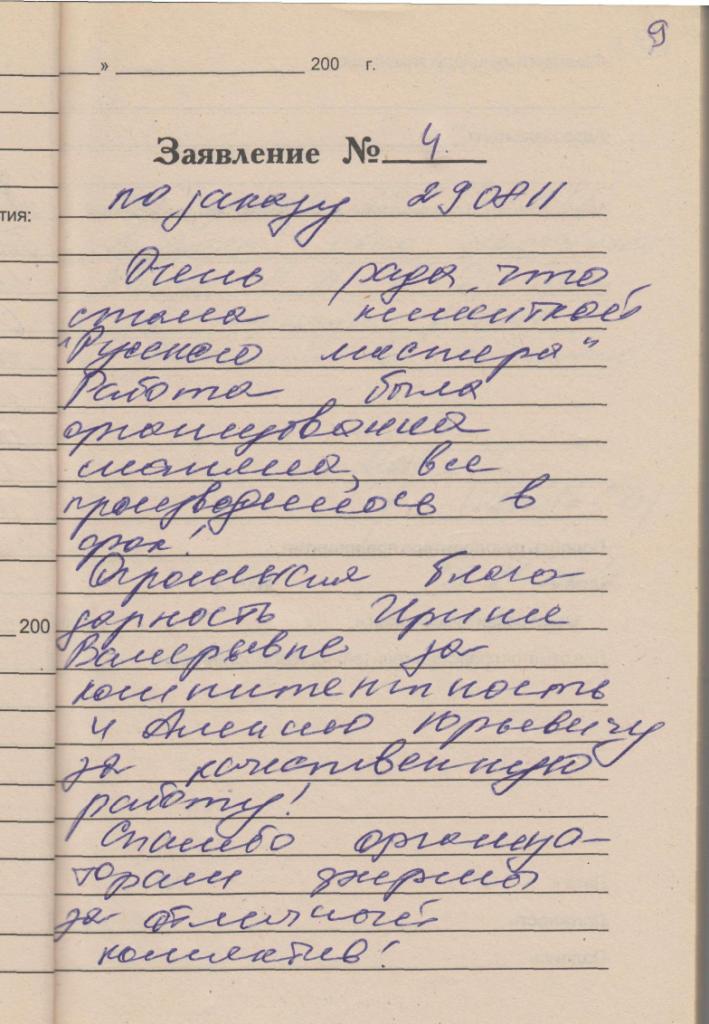 9
» 200 г.
Заявление № 4
по заказу 290811
тия:
Очень рада, что
стала клиенткой
"Русского мастера"
Работа была
организованна
слаженна, все
производилось в
срок!
Огромная благо
дарность Ирине
200
Валерьевне за
компитентность
и Алексею Юрьевичу
за качественную
работу!
Спасибо организа-
торам фирмы
за отличный
коллектив!